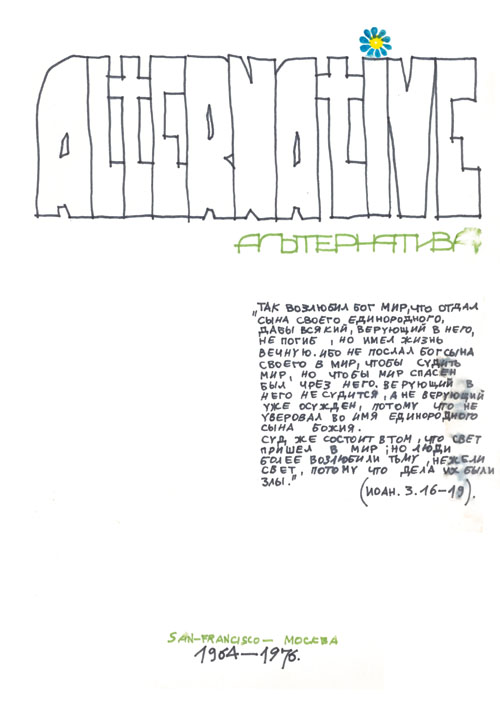 ALTERNATIVE
АЛЬТЕРНАТИВА
„ТАК ВОЗЛЮБИЛ БОГ МИР, ЧТО ОТДАЛ
СЫНА СВОЕГО ЕДИНОРОДНОГО,
ДАБЫ ВСЯКИЙ, ВЕРУЮЩИЙ В НЕГО,
НЕ ПОГИБ , НО ИМЕЛ ЖИЗНЬ
ВЕЧНУЮ. ИБО НЕ ПОСЛАЛ БОГ СЫНА
СВОЕГО В МИР, ЧТОБЫ СУДИТЬ
МИР, НО ЧТОБЫ МИР СПАСЕН
БЫЛ ЧРЕЗ НЕГО. ВЕРУЮЩИЙ В
НЕГО НЕ СУДИТСЯ , А НЕ ВЕРУЮЩИЙ
УЖЕ ОСУЖДЕН, ПОТОМУ ЧТО НЕ
УВЕРОВАЛ ВО ИМЯ ЕДИНОРОДНОГО
СЫНА БОЖИЯ.
СУД ЖЕ СОСТОИТ В ТОМ , ЧТО СВЕТ
ПРИШЕЛ В МИР ; НО ЛЮДИ
БОЛЕЕ ВОЗЛЮБИЛИ ТЬМУ , НЕЖЕЛИ
СВЕТ , ПОТОМУ ЧТО ДЕЛА ИХ БЫЛИ
ЗЛЫ."
(ИОАН. 3. 16—19).
SAN-FRANCISCO — МОСКВА
1964—1976.